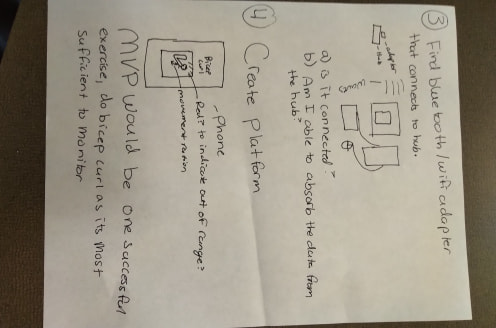 ③ Find bluetooth/wifi adapter
that connects to hub.
- adapter
- Hub
a) is it connected?
b) Am I able to absorb the data from
the hub?
④ Create platform
- Phone
Bicep
curl
Red? to indicate out of range?
movement
MVP would be one successful
exercise, do bicep curl as its most
sufficient to monitor